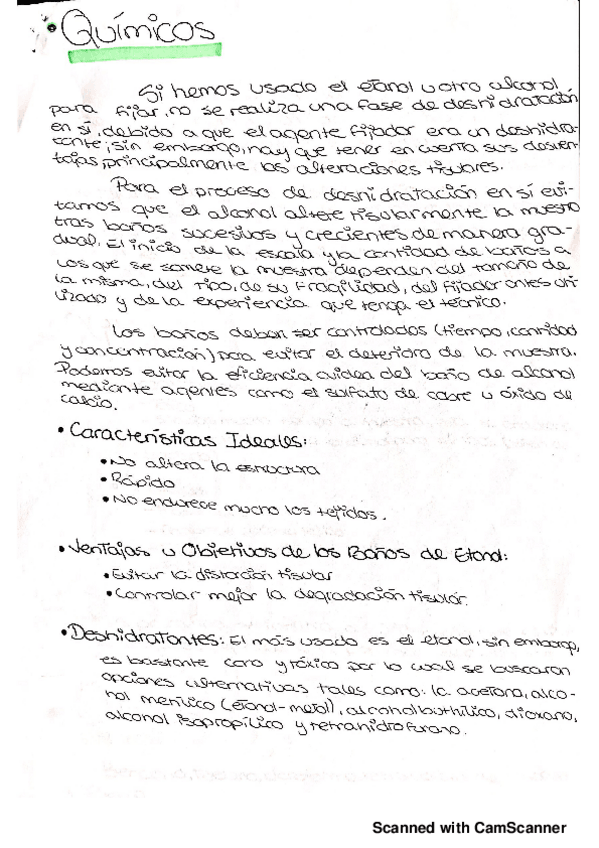 Químicos
Si hemos usado el etanol u otro alcohol
para fijar, no se realiza una fase de deshidratación
en sí, debido a que el agente fijador era un deshidra-
tante; sin embargo, hay que tener en cuenta sus desven-
tajas, principalmente las alteraciones tisulares.
Para el proceso de deshidratación en sí evi-
tamos que el alcohol altere tisularmente la muestra
tras baños sucesivos y crecientes de manera gra-
dual. El inicio de la escala y la cantidad de baños a
los que se somete la muestra dependen del tamaño de
la misma, del tipo, de su fragilidad, del fijador antes uti-
lizado y de la experiencia que tenga el técnico.
Los baños deben ser controlados (tiempo, cantidad
y concentración) para evitar el deterioro de la muestra.
Podemos evitar la eficiencia del baño de alcohol
mediante agentes como el sulfato de cobre u óxido de
calcio.
• Características Ideales:
• No altera la estructura
• Rápido
• No endurece mucho los tejidos.
• Ventajas u Objetivos de los Baños de Etanol:
• Evitar la distorsión tisular
• Controlar mejor la degradación tisular.
• Deshidratantes: El más usado es el etanol, sin embargo,
es bastante caro y tóxico por lo cual se buscaron
opciones alternativas tales como: la acetona, alco-
hol metílico (etanol-metol), alcohol buthílico, dioxano,
alcohol isopropílico y tetrahidrofurano.
Scanned with CamScanner